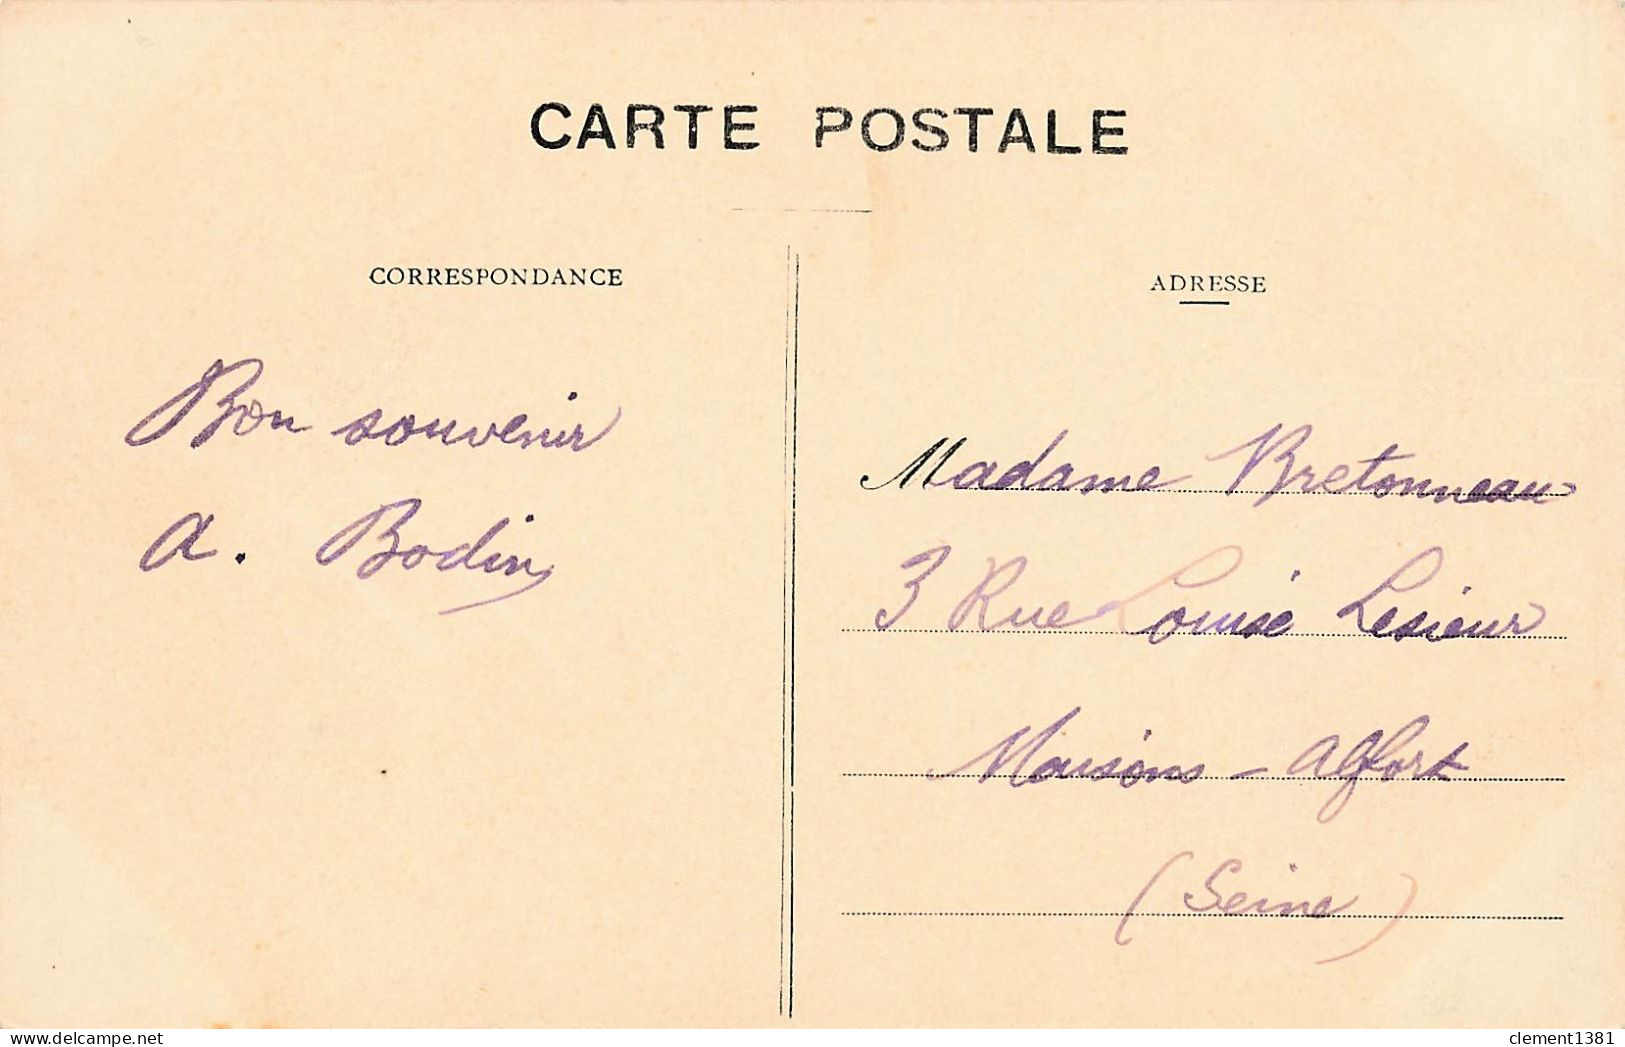 CARTE POSTALE
CORRESPONDANCE
Bon souvenir
A. Bodin
ADRESSE
Madame Bretonneau
3 Rue Louise Lesieur
Maisons - Alfort
(Seine)
delcampe.net
clement1381